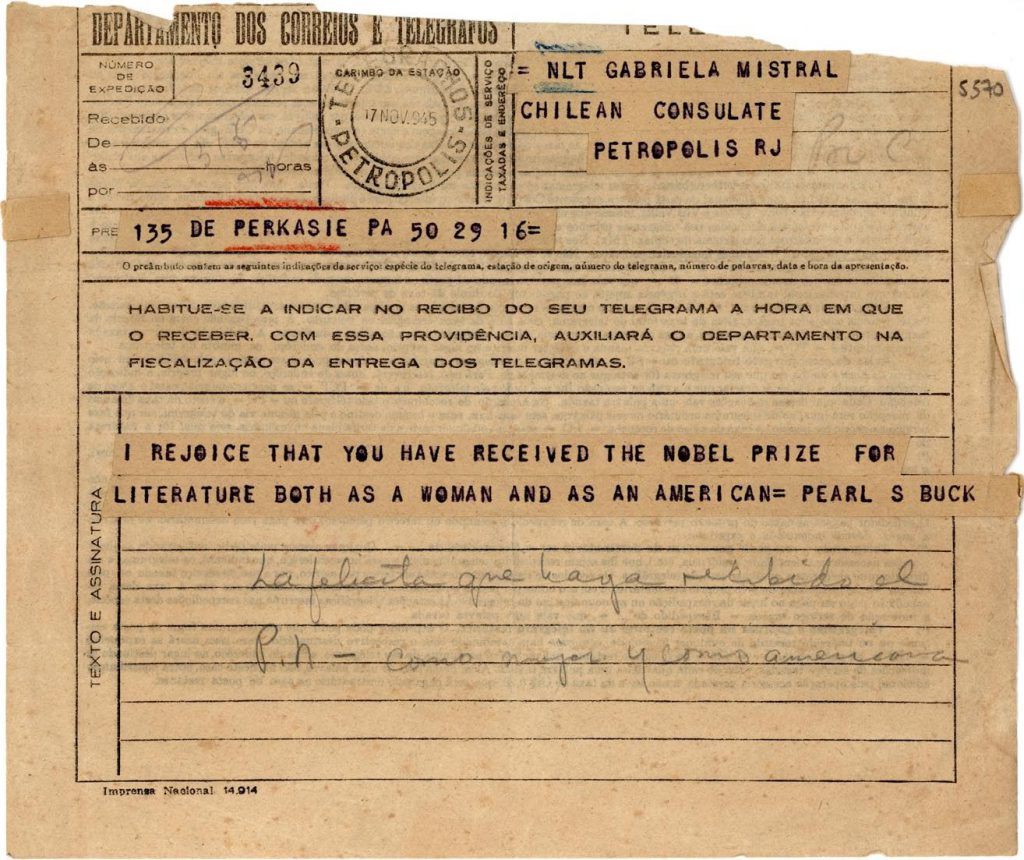 DEPARTAMENTO DOS CORREIOS E TELEGRAFOS
NÚMERO DE EXPEDIÇÃO
3439
Recebido
De
às horas
por
CARIMBO DA ESTAÇÃO
17 NOV. 945
PETROPOLIS
INDICAÇÕES DE SERVIÇO
TAXADAS E ENDEREÇO
= NLT GABRIELA MISTRAL
CHILEAN CONSULATE
PETROPOLIS RJ
5570
PRE 135 DE PERKASIE PA 50 29 16=
O preâmbulo contem as seguintes indicações de serviço: espécie do telegrama, estação de origem, número do telegrama, número de palavras, data e hora da apresentação.
HABITUE-SE A INDICAR NO RECIBO DO SEU TELEGRAMA A HORA EM QUE
O RECEBER. COM ESSA PROVIDÊNCIA, AUXILIARÁ O DEPARTAMENTO NA
FISCALIZAÇÃO DA ENTREGA DOS TELEGRAMAS.
TEXTO E ASSINATURA
I REJOICE THAT YOU HAVE RECEIVED THE NOBEL PRIZE FOR
LITERATURE BOTH AS A WOMAN AND AS AN AMERICAN= PEARL S BUCK
La felicita que haya recibido el
P.N – como mujer y como americana
Imprensa Nacional 14.914